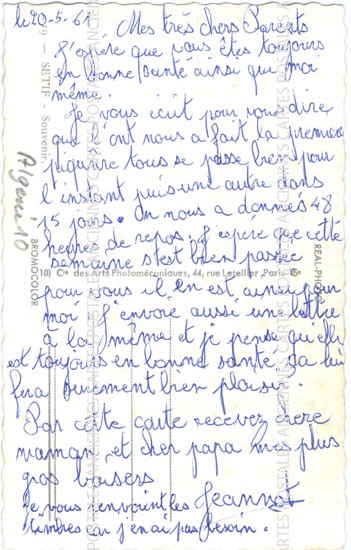 le 20-5-61
Mes très chers Parents
J'espère que vous êtes toujours
en bonne santé ainsi que moi
même.
Je vous écrit pour vous dire
que l'ont nous a fait la première
piquire tous se passe bien pour
l'instant puis une autre dans
15 jours. On nous a donnés 48
heures de repos. J'espère que cette
semaine s'est bien passée
pour vous il en est ainsi pour
moi J'envoie aussi une lettre
à la même et je pense qu'elle
est toujours en bonne santé. Sa lui
fera surement bien plaisir.
Par cette carte recevez chère
maman et cher papa mes plus
gros baisers
Jeannot
Je vous renvoint les
timbres car j'en ai pas besoin.
SETIF - Souvenir
Algerie 10
BROMOCOLOR
(10) C° des Arts Photomécaniques, 44, rue Letellier, Paris
REAL-PHOTO